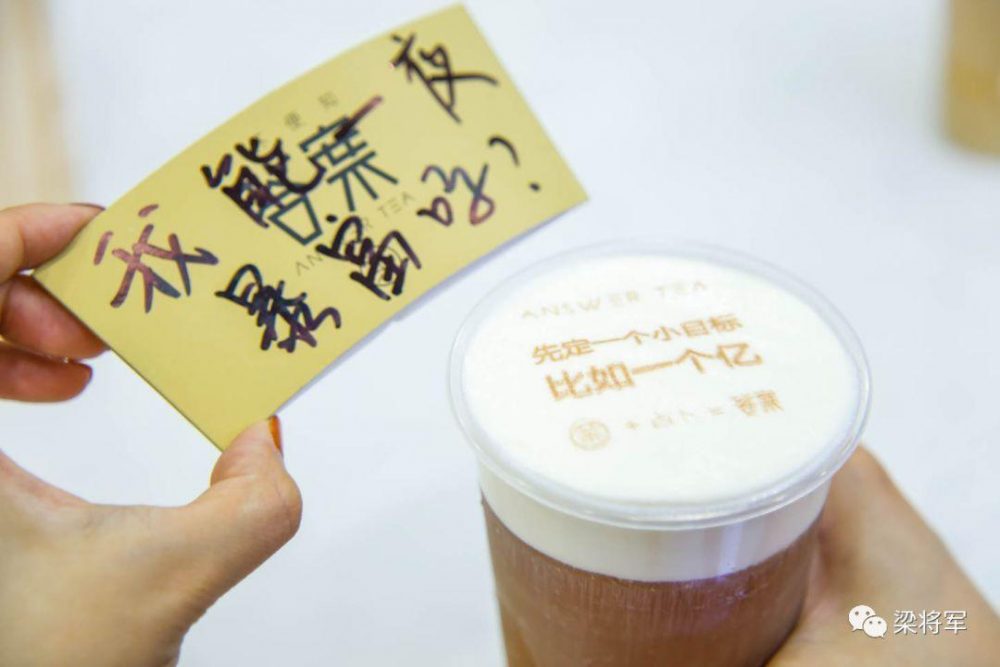 便知
答案
ANSWER TEA
我能一夜
暴富吗?
ANSWER TEA
先定一个小目标
比如一个亿
茶 + 占卜 = 答案
梁将军